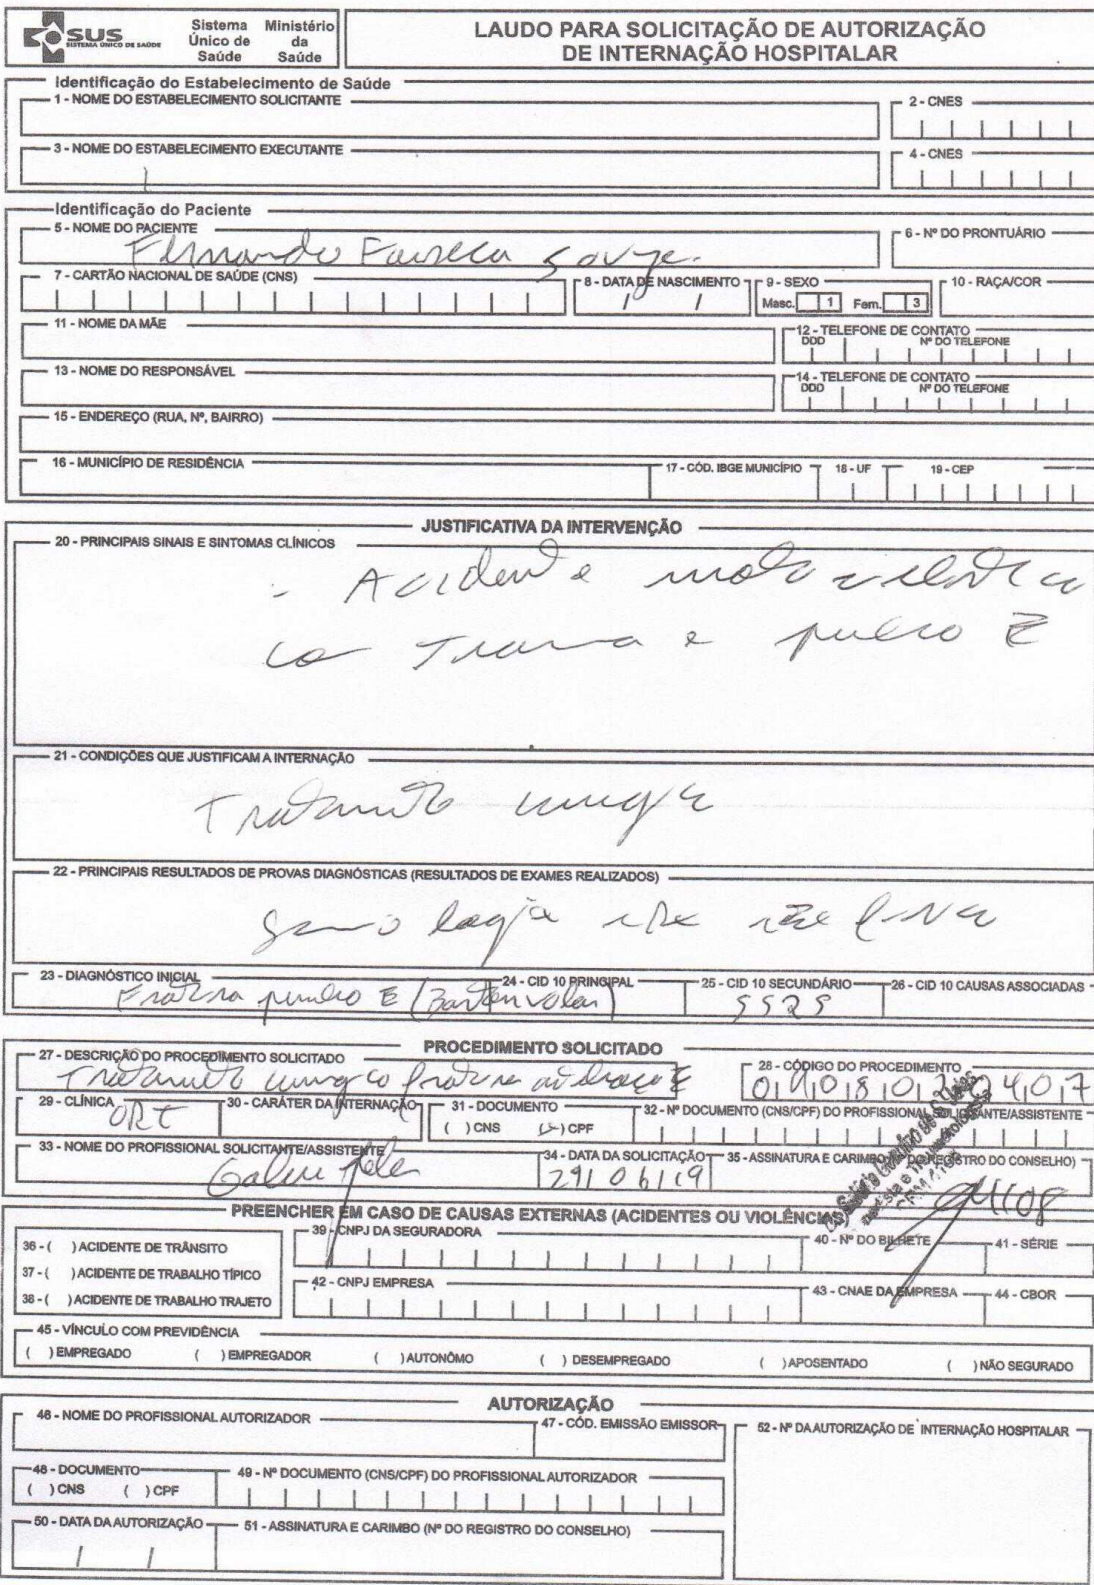 SUS
SISTEMA ÚNICO DE SAÚDE
Sistema Único de Saúde
Ministério da Saúde
LAUDO PARA SOLICITAÇÃO DE AUTORIZAÇÃO
DE INTERNAÇÃO HOSPITALAR
Identificação do Estabelecimento de Saúde
1 - NOME DO ESTABELECIMENTO SOLICITANTE
2 - CNES
3 - NOME DO ESTABELECIMENTO EXECUTANTE
4 - CNES
Identificação do Paciente
5 - NOME DO PACIENTE
6 - Nº DO PRONTUÁRIO
Fernando Fonseca
7 - CARTÃO NACIONAL DE SAÚDE (CNS)
8 - DATA DE NASCIMENTO
/ /
9 - SEXO
Masc. 1 Fem. 3
10 - RAÇA/COR
11 - NOME DA MÃE
12 - TELEFONE DE CONTATO
DDD Nº DO TELEFONE
13 - NOME DO RESPONSÁVEL
14 - TELEFONE DE CONTATO
DDD Nº DO TELEFONE
15 - ENDEREÇO (RUA, Nº, BAIRRO)
16 - MUNICÍPIO DE RESIDÊNCIA
17 - CÓD. IBGE MUNICÍPIO
18 - UF
19 - CEP
JUSTIFICATIVA DA INTERVENÇÃO
20 - PRINCIPAIS SINAIS E SINTOMAS CLÍNICOS
- Acidente
Trauma punho E
21 - CONDIÇÕES QUE JUSTIFICAM A INTERNAÇÃO
Tratamento
22 - PRINCIPAIS RESULTADOS DE PROVAS DIAGNÓSTICAS (RESULTADOS DE EXAMES REALIZADOS)
23 - DIAGNÓSTICO INICIAL
24 - CID 10 PRINCIPAL
25 - CID 10 SECUNDÁRIO
26 - CID 10 CAUSAS ASSOCIADAS
Fratura punho E (Barton volar)
S525
PROCEDIMENTO SOLICITADO
27 - DESCRIÇÃO DO PROCEDIMENTO SOLICITADO
28 - CÓDIGO DO PROCEDIMENTO
Tratamento fratura
29 - CLÍNICA
ORT
30 - CARÁTER DA INTERNAÇÃO
31 - DOCUMENTO
( ) CNS ( ) CPF
32 - Nº DOCUMENTO (CNS/CPF) DO PROFISSIONAL SOLICITANTE/ASSISTENTE
33 - NOME DO PROFISSIONAL SOLICITANTE/ASSISTENTE
34 - DATA DA SOLICITAÇÃO
29/06/19
35 - ASSINATURA E CARIMBO (Nº DO REGISTRO DO CONSELHO)
PREENCHER EM CASO DE CAUSAS EXTERNAS (ACIDENTES OU VIOLÊNCIAS)
36 - ( ) ACIDENTE DE TRÂNSITO
37 - ( ) ACIDENTE DE TRABALHO TÍPICO
38 - ( ) ACIDENTE DE TRABALHO TRAJETO
39 - CNPJ DA SEGURADORA
40 - Nº DO BILHETE
41 - SÉRIE
42 - CNPJ EMPRESA
43 - CNAE DA EMPRESA
44 - CBOR
45 - VÍNCULO COM PREVIDÊNCIA
( ) EMPREGADO ( ) EMPREGADOR ( ) AUTONÔMO ( ) DESEMPREGADO ( ) APOSENTADO ( ) NÃO SEGURADO
AUTORIZAÇÃO
46 - NOME DO PROFISSIONAL AUTORIZADOR
47 - CÓD. EMISSÃO EMISSOR
52 - Nº DA AUTORIZAÇÃO DE INTERNAÇÃO HOSPITALAR
48 - DOCUMENTO
( ) CNS ( ) CPF
49 - Nº DOCUMENTO (CNS/CPF) DO PROFISSIONAL AUTORIZADOR
50 - DATA DA AUTORIZAÇÃO
/ /
51 - ASSINATURA E CARIMBO (Nº DO REGISTRO DO CONSELHO)